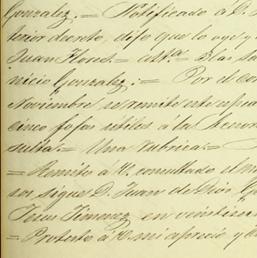 Gonzalez. = Notificado á D.
terior decreto, dijo que lo oye y
Juan Flores. = 
nicio Gonzalez. = Por el cor
Noviembre se remite este espe
cinco fojas útiles á la Señor
sulta. = Una rubrica. =
= Remito á V. consultado el
sor sigue D. Juan de Dios G
Jesus Jimenez en veintiun
= Protesto á V. mi aprecio y